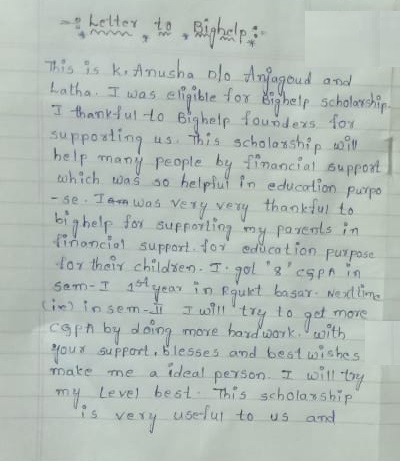 Letter to Bighelp:-
This is K. Anusha D/o Anjagoud and
Latha. I was eligible for Bighelp scholarship.
I thankful to Bighelp founders for
supporting us. This scholarship will
help many people by financial support
which was so helpful in education purpo
-se. I was very very thankful to
bighelp for supporting my parents in
financial support. for education purpose
for their children. I. got "8" CGPA in
Sem-I 1st year in Rgukt basar. Next time
(i.e) in sem-II I will try to get more
CGPA by doing more hardwork. with
your support, blesses and best wishes
make me a ideal person. I will try
my Level best. This scholarship
is very useful to us and